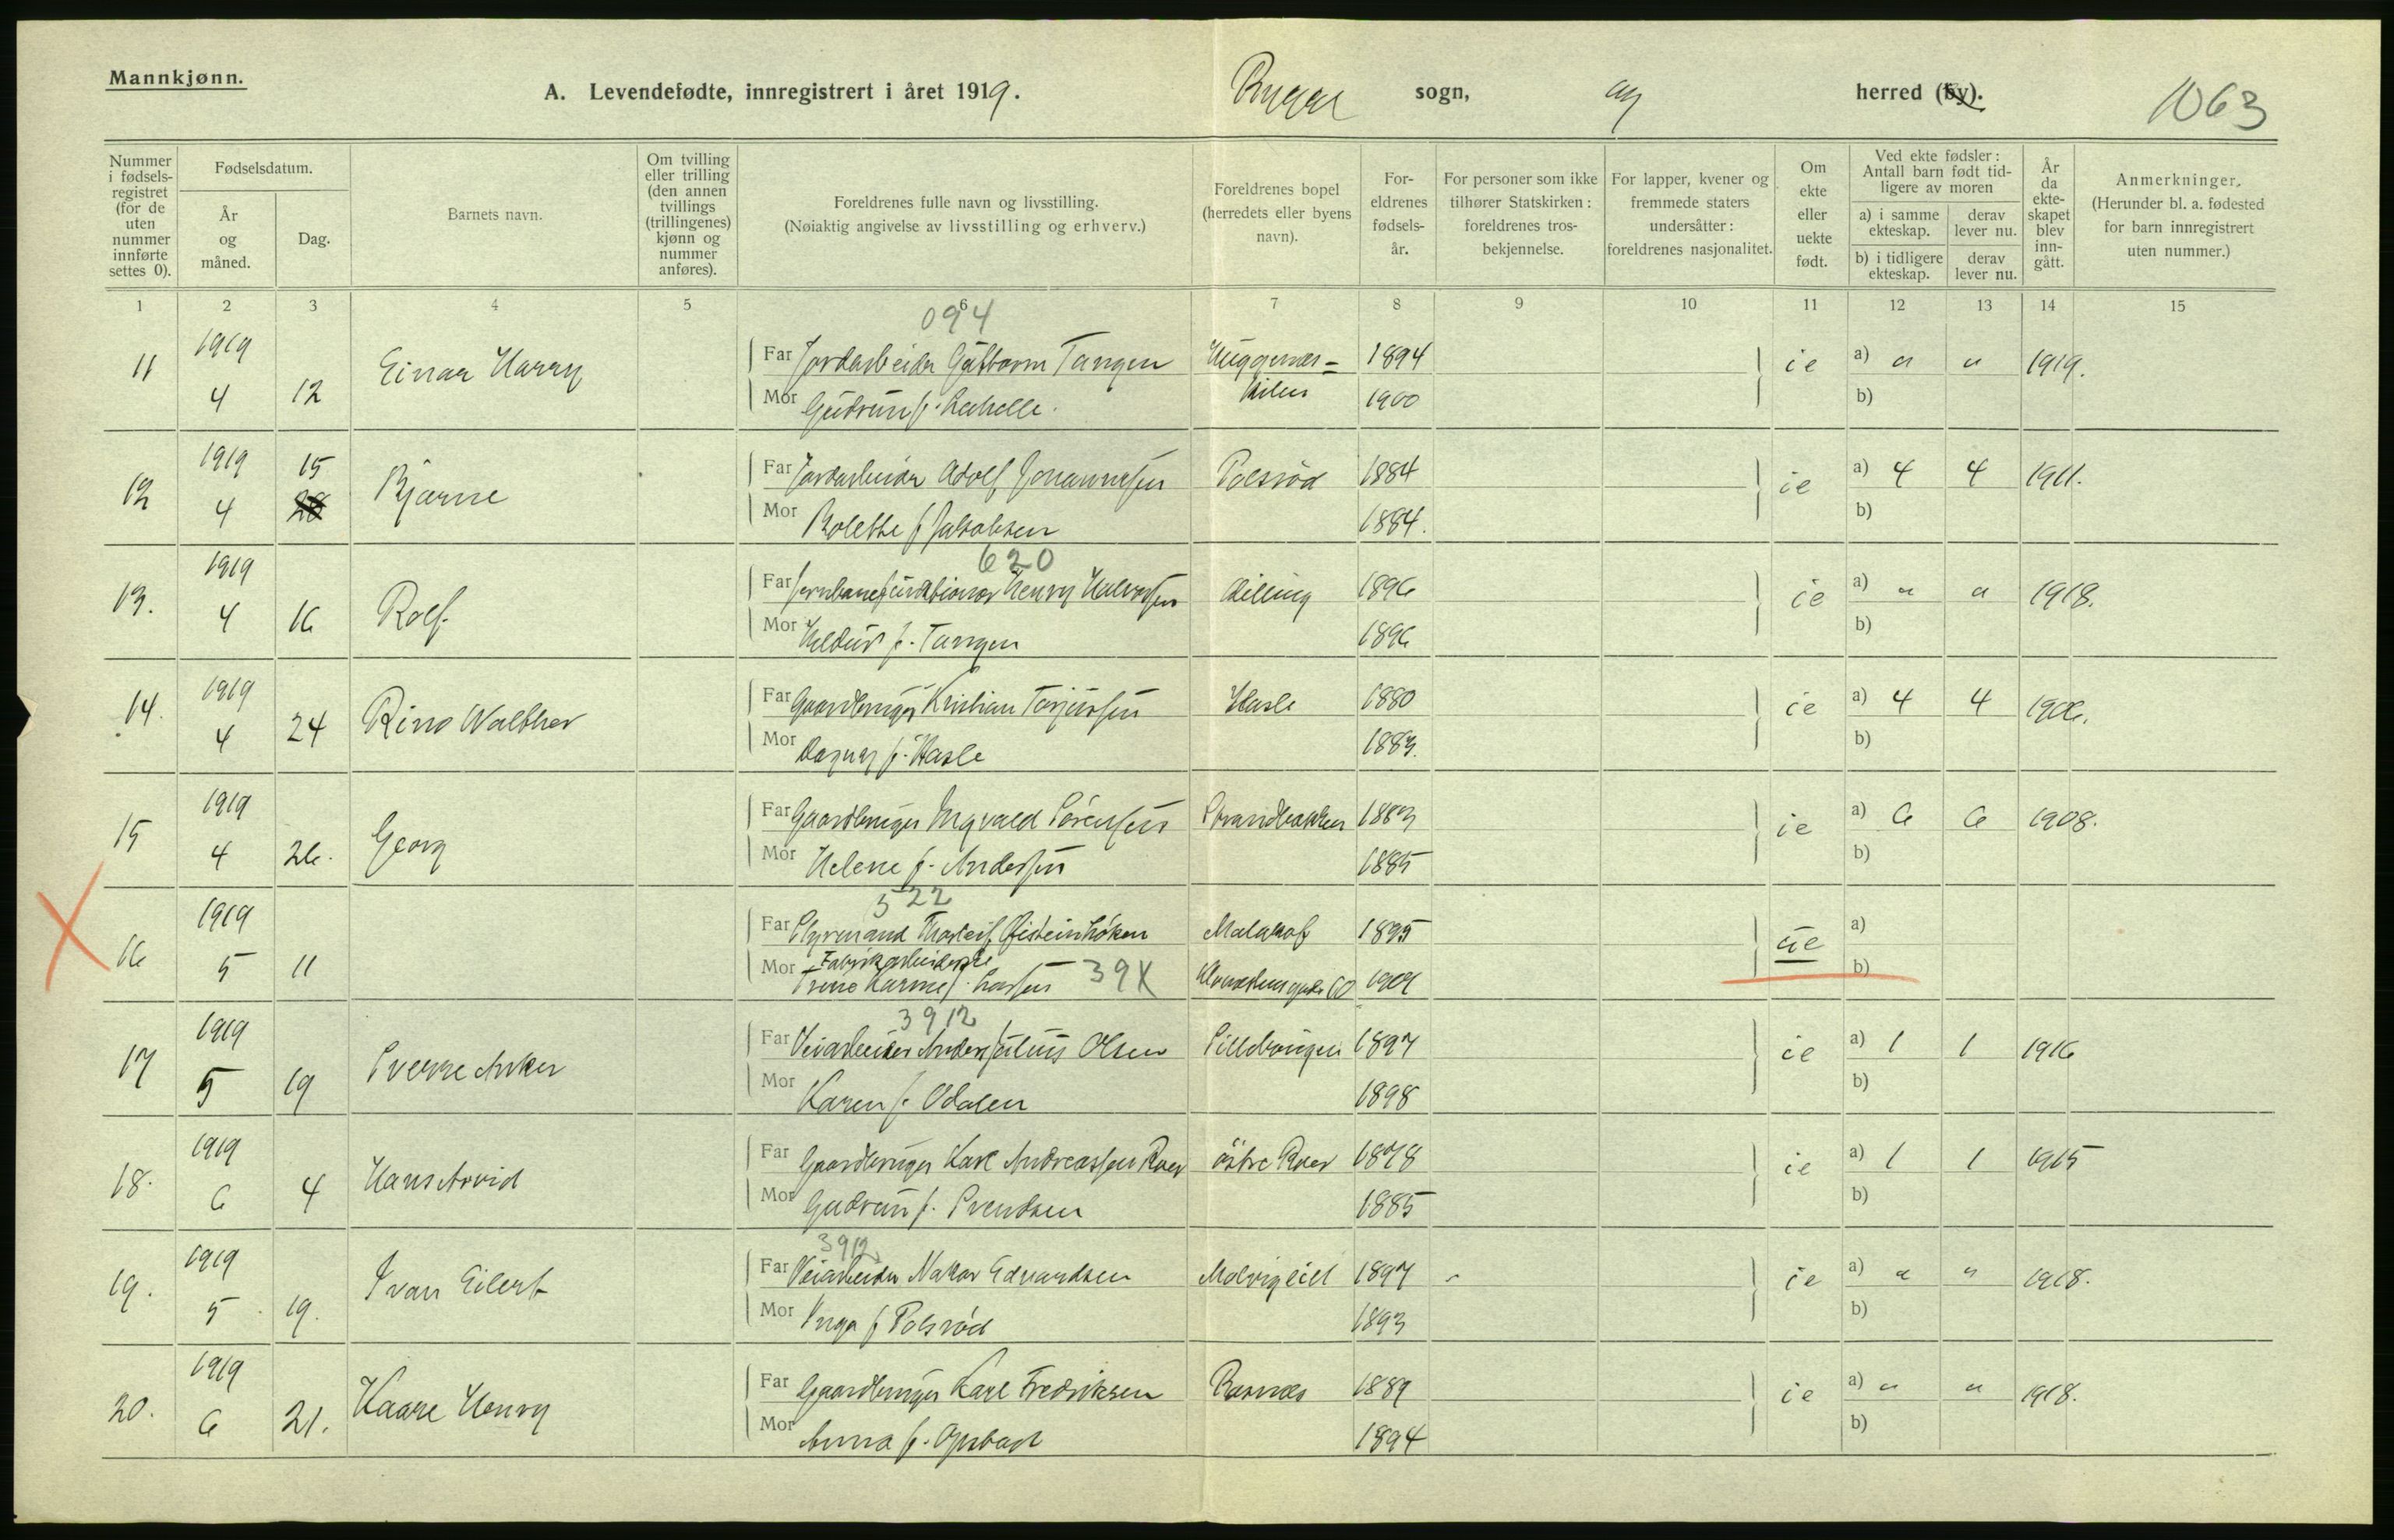 Mannkjønn.
A. Levendefødte, innregistrert i året 1919. Rygge sogn, og herred (by). 1063
Nummer i fødsels-registret (for de uten nummer innførte settes 0).
Fødselsdatum.
År og måned.
Dag.
Barnets navn.
Om tvilling eller trilling (den annen tvillings (trillingenes) kjønn og nummer anføres).
Foreldrenes fulle navn og livsstilling.
(Nøiaktig angivelse av livsstilling og erhverv.)
Foreldrenes bopel (herredets eller byens navn).
For-eldrenes fødsels-år.
For personer som ikke tilhører Statskirken: foreldrenes tros-bekjennelse.
For lapper, kvener og fremmede staters undersåtter: foreldrenes nasjonalitet.
Om ekte eller uekte født.
Ved ekte fødsler: Antall barn født tid-ligere av moren
a) i samme ekteskap. derav lever nu.
b) i tidligere ekteskap. derav lever nu.
År da ekte-skapet blev inn-gått.
Anmerkninger.
(Herunder bl. a. fødested for barn innregistrert uten nummer.)
1 2 3 4 5 6 7 8 9 10 11 12 13 14 15
094
11 1919 Einar Harry Far Jordarbeider Guttorm Tangen 1894 ie a) " " 1919.
4 12 Mor Gudrun f. 1900 b)
12 1919 15 Bjarne Far Jordarbeider Adolf Johannessen Polsrød 1884 ie a) 4 4 1911.
4 28 Mor Bolette f Jakobsen 1884. b)
620
13. 1919 Rolf Far Henry Halvorsen Dilling 1896 ie a) " " 1918.
4 16 Mor f. Tangen 1896 b)
14. 1919 Rino Walther Far Gaardbruger Kristian Tarjussen Hasle 1880 ie a) 4 4 1906.
4 24 Mor Dagny f. Hasle 1883. b)
15 1919 Georg Far Gaardbruger Ingvald Sørensen Strandbakken 1883 ie a) 6 6 1908.
4 26. Mor Helene f. Andersen 1885 b)
522
16 1919 Far Styrmand Thorleif Malakof 1895 ue a)
5 11 Mor Fabrikarbeiderske
f. Larsen 39X 60 b)
3912
17 1919 Sverre Anker Far Veiarbeider Anders Julius Olsen 1897 ie a) 1 1 1916
5 19 Mor Karen f. Odalen 1898 b)
18. 1919 Hans Arvid Far Gaardbruger Karl Andreassen Roer östre Roer 1878 ie a) 1 1 1915
6 4 Mor Gudrun f. Svendsen 1885 b)
3912
19. 1919 Ivan Eilert Far Veiarbeider Edvardsen 1897 ie a) " " 1918.
5 19. Mor Inga f Polsrød 1893 b)
20. 1919 Kaare Henry Far Gaardbruger Karl Fredriksen 1889 ie a) " " 1918.
6 21. Mor Anna f. 1894 b)